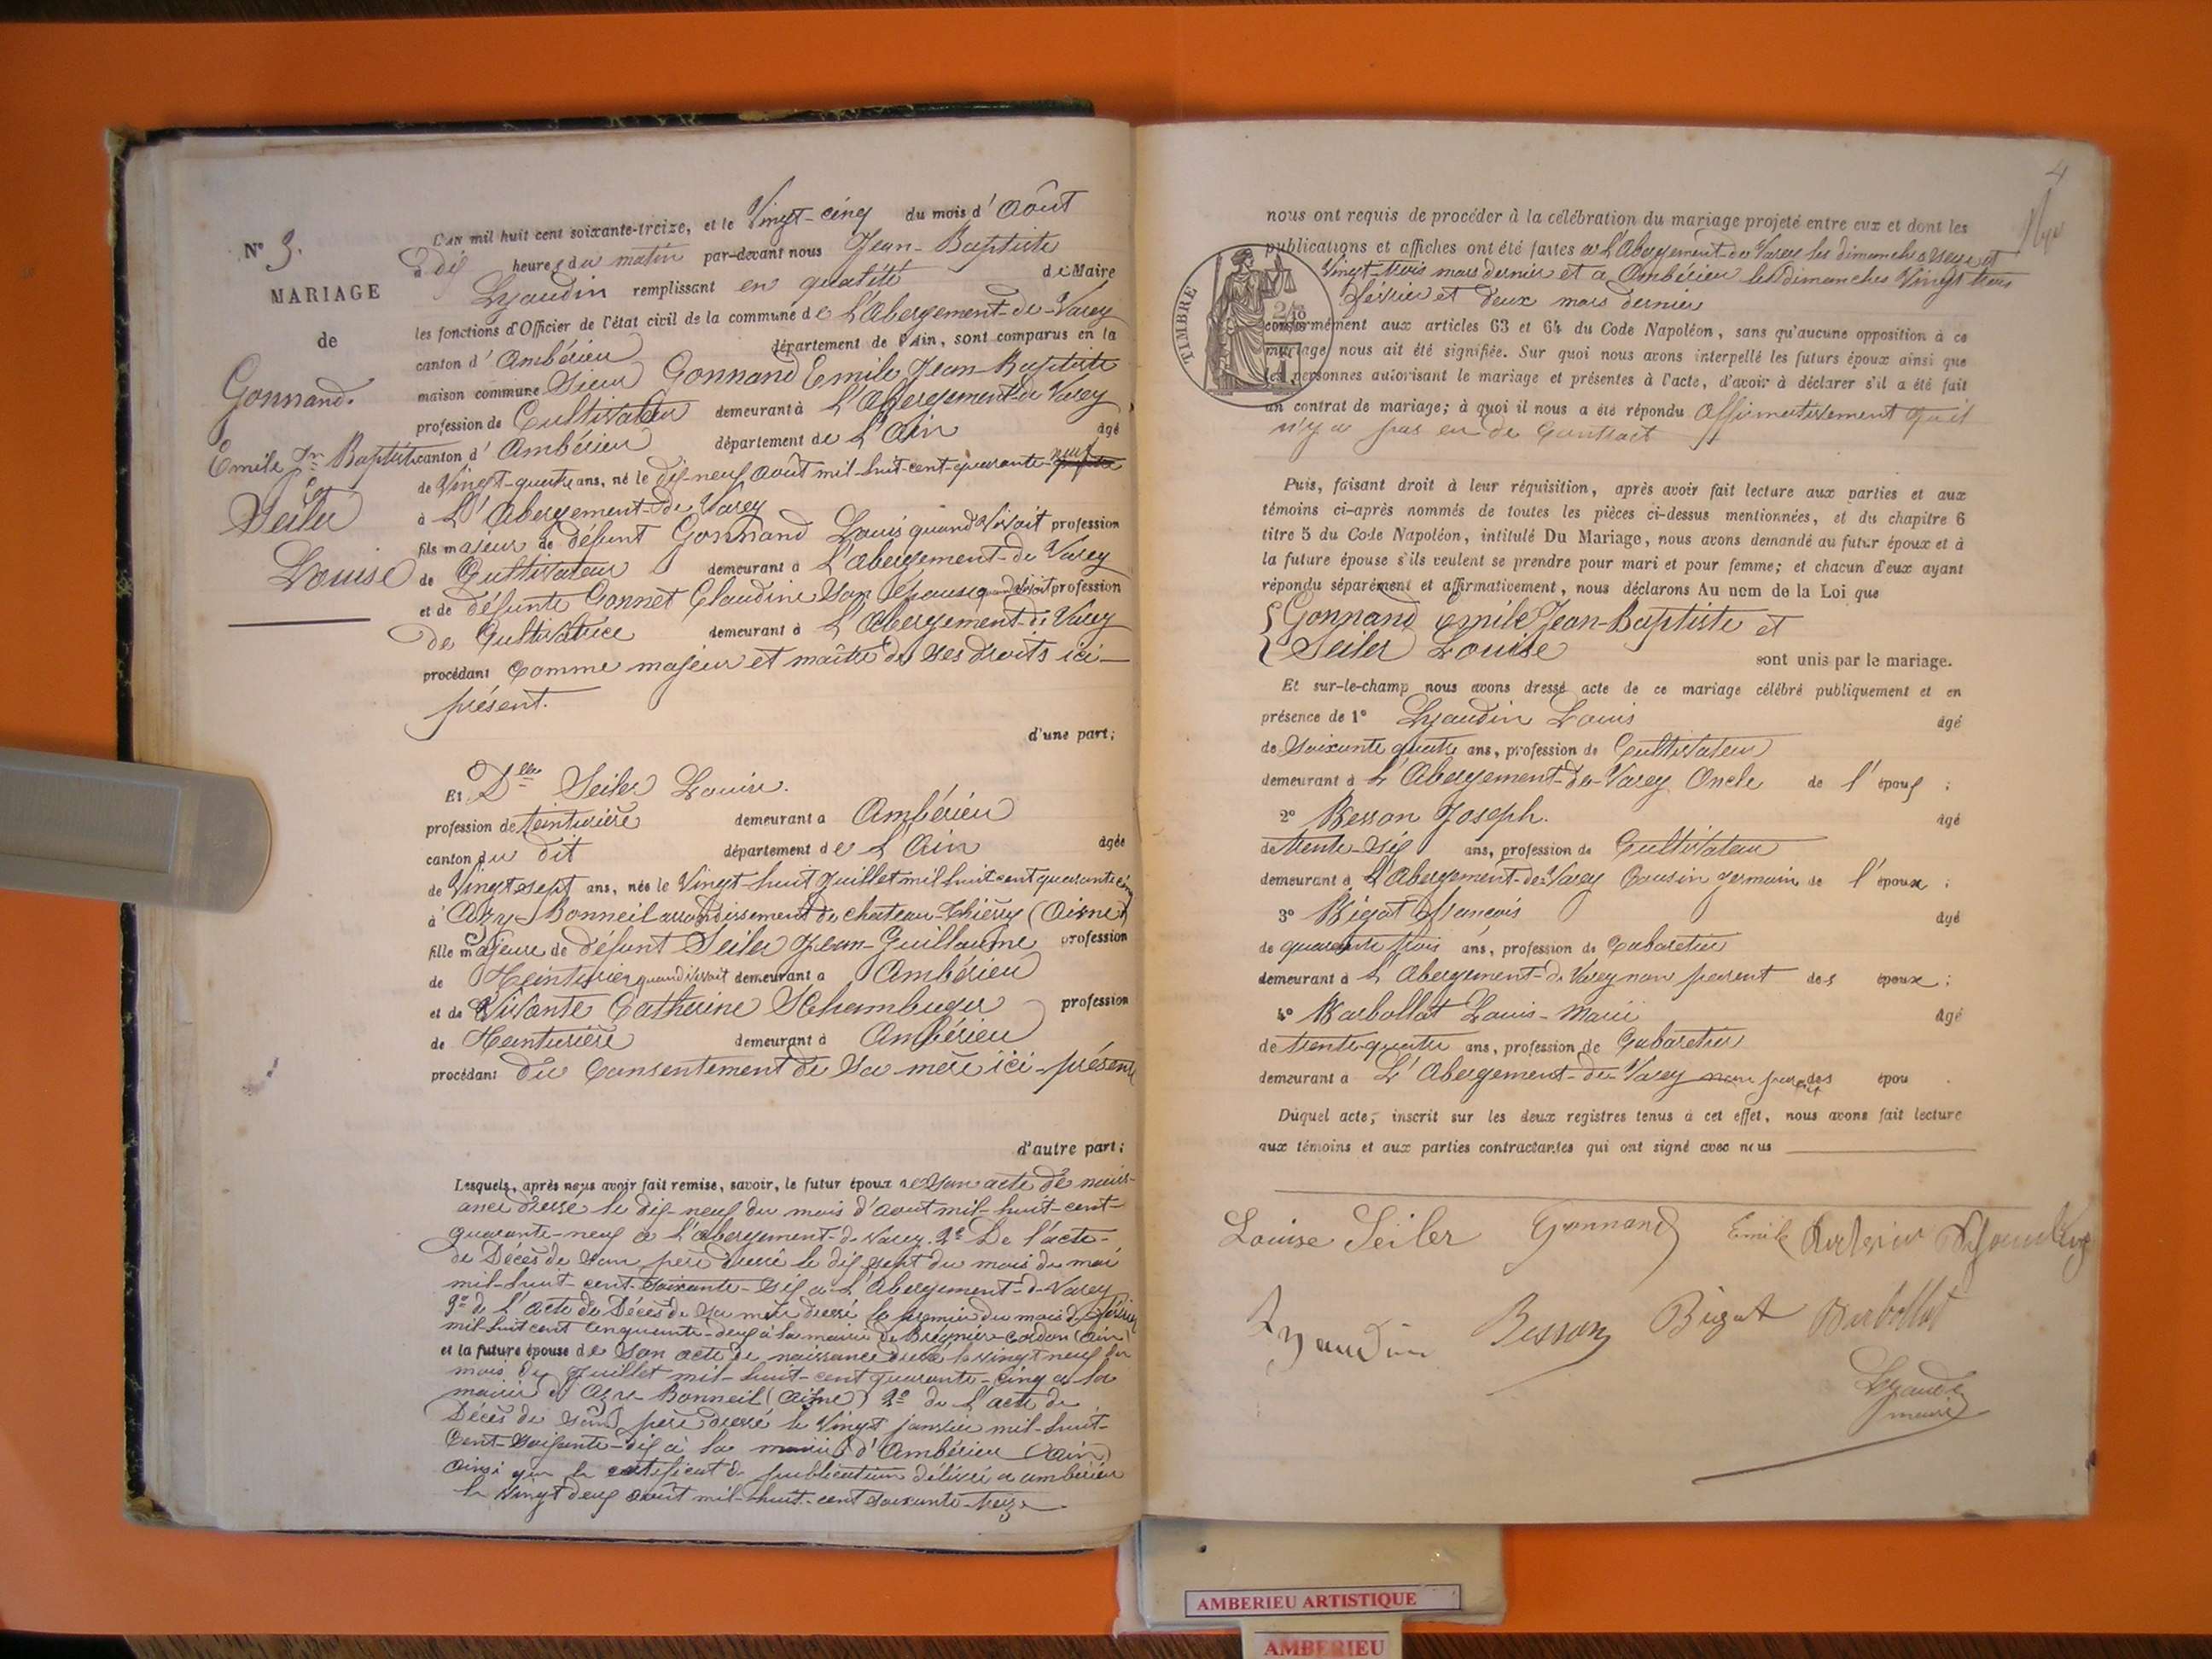 N° 3.
MARIAGE
de
Gonnand.
Emile Jn Baptiste
Et
Seiler
Louise
L'AN mil huit cent soixante-treize, et le Vingt-cinq du mois d'Août
à dix heures du matin par-devant nous Jean-Baptiste
Lyaudin remplissant en qualité de Maire
les fonctions d'Officier de l'état civil de la commune de L'Abergement-de-Varey
canton d'Ambérieu département de l'Ain, sont comparus en la
maison commune Sieur Gonnand Emile Jean-Baptiste
profession de Cultivateur demeurant à L'Abergement-de Varey
canton d'Ambérieu département de L'Ain âgé
de Vingt-quatre ans, né le dix-neuf août mil-huit-cent-quarante-neuf
à L'Abergement-de Varey
fils majeur de défunt Gonnand Louis quand vivait profession
de Cultivateur demeurant à L'abergement-de Varey
et de défunte Gonnet Claudine Son épouse quand vivait profession
de Cultivatrice demeurant à L'Abergement-de Varey
procédant comme majeur et maître de ses droits ici-
présent.
d'une part;
Et Dlle Seiler Louise.
profession de teinturière demeurant à Ambérieu
canton du dit département de L'Ain âgée
de Vingt sept ans, née le Vingt-huit Juillet mil huit cent quarante cinq
à Azy-Bonneil arrondissement de chateau-Thierry (Aisne)
fille majeure de défunt Seiler Jean-Guillaume profession
de Teinturier quand vivait demeurant à Ambérieu
et de Vivante Catherine Schambuger profession
de Teinturière demeurant à Ambérieu
procédant du Consentement de Sa mère ici-présente
d'autre part;
Lesquels, après nous avoir fait remise, savoir, le futur époux de Son acte de naiss-
ance dressé le dix-neuf du mois d'aout mil-huit-cent-
quarante-neuf à L'abergement-de Varey. 2° De l'acte-
de Décès de son père dressé le dix sept du mois de mai
mil-huit-cent-soixante-dix à L'Abergement-de-Varey
3° de L'acte de Décès de Sa mère dressé le premier du mois de février
mil-huit cent cinquante-deux à la mairie de Brégnier-Cordon (Ain)
et la future épouse de Son acte de naissance dressé le vingt neuf du
mois de Juillet mil-huit-cent quarante-cinq à la
mairie d'Azy-Bonneil (Aisne) 2° de L'acte de
Décès de Son père dressé le Vingt janvier mil-huit-
Cent-Soixante-dix à la mairie d'Ambérieu (Ain)
ainsi que le certificat de publication délivré a ambérieu
le Vingt deux août mil-huit-cent soixante-treize
4
nous ont requis de procéder à la célébration du mariage projeté entre eux et dont les
publications et affiches ont été faites à L'Abergement-de Varey les dimanches Seize et
Vingt-trois mars dernier et a Ambérieu les dimanches Vingt trois
février et deux mars dernier
TIMBRE
conformément aux articles 63 et 64 du Code Napoléon, sans qu'aucune opposition à ce
mariage nous ait été signifiée. Sur quoi nous avons interpellé les futurs époux ainsi que
les personnes autorisant le mariage et présentes à l'acte, d'avoir à déclarer s'il a été fait
un contrat de mariage; à quoi il nous a été répondu affirmativement qu'il
n'y a pas eu de Contrait
Puis, faisant droit à leur réquisition, après avoir fait lecture aux parties et aux
témoins ci-après nommés de toutes les pièces ci-dessus mentionnées, et du chapitre 6
titre 5 du Code Napoléon, intitulé Du Mariage, nous avons demandé au futur époux et à
la future épouse s'ils veulent se prendre pour mari et pour femme; et chacun d'eux ayant
répondu séparément et affirmativement, nous déclarons Au nom de la Loi que
Gonnand Emile Jean-Baptiste et
Seiler Louise
sont unis par le mariage.
Et sur-le-champ nous avons dressé acte de ce mariage célébré publiquement et en
présence de 1° Lyaudin Louis âgé
de Soixante quatre ans, profession de Cultivateur
demeurant à L'Abergement-de-Varey Oncle de l'époux ;
2° Besson Joseph. âgé
de trente-six ans, profession de Cultivateur
demeurant à L'Abergement-de-Varey Cousin germain de l'époux ;
3° Bigot François âgé
de quarante trois ans, profession de Cabaretier
demeurant à L'Abergement-de Varey non parent des époux ;
4° Barbollat Louis-Marie âgé
de trente-quatre ans, profession de Cabaretier
demeurant à L'Abergement-de-Varey non parent des épou .
Duquel acte, inscrit sur les deux registres tenus à cet effet, nous avons fait lecture
aux témoins et aux parties contractantes qui ont signé avec nous
Louise Seiler Gonnand Emile
Lyaudin Besson Bigot Barbollat
Lyaudin
maire
AMBERIEU ARTISTIQUE
AMBERIEU